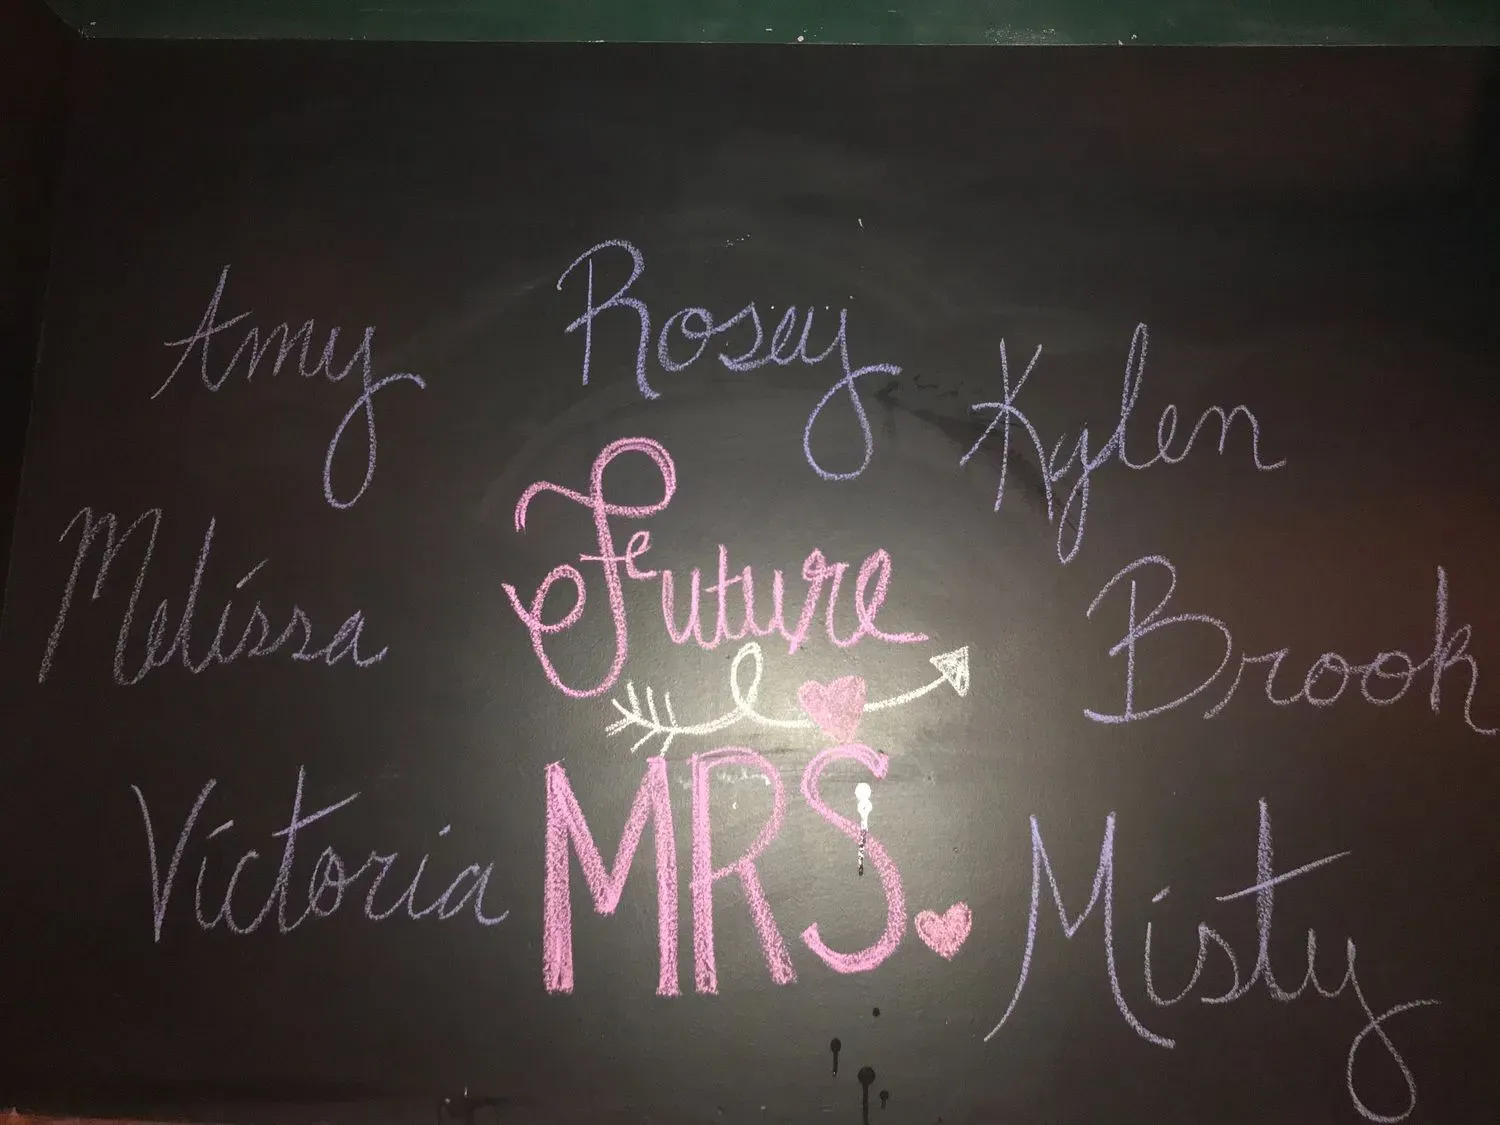 Amy
Rosey
Kylen
Melissa
Future
Brook
MRS.
Victoria
Misty